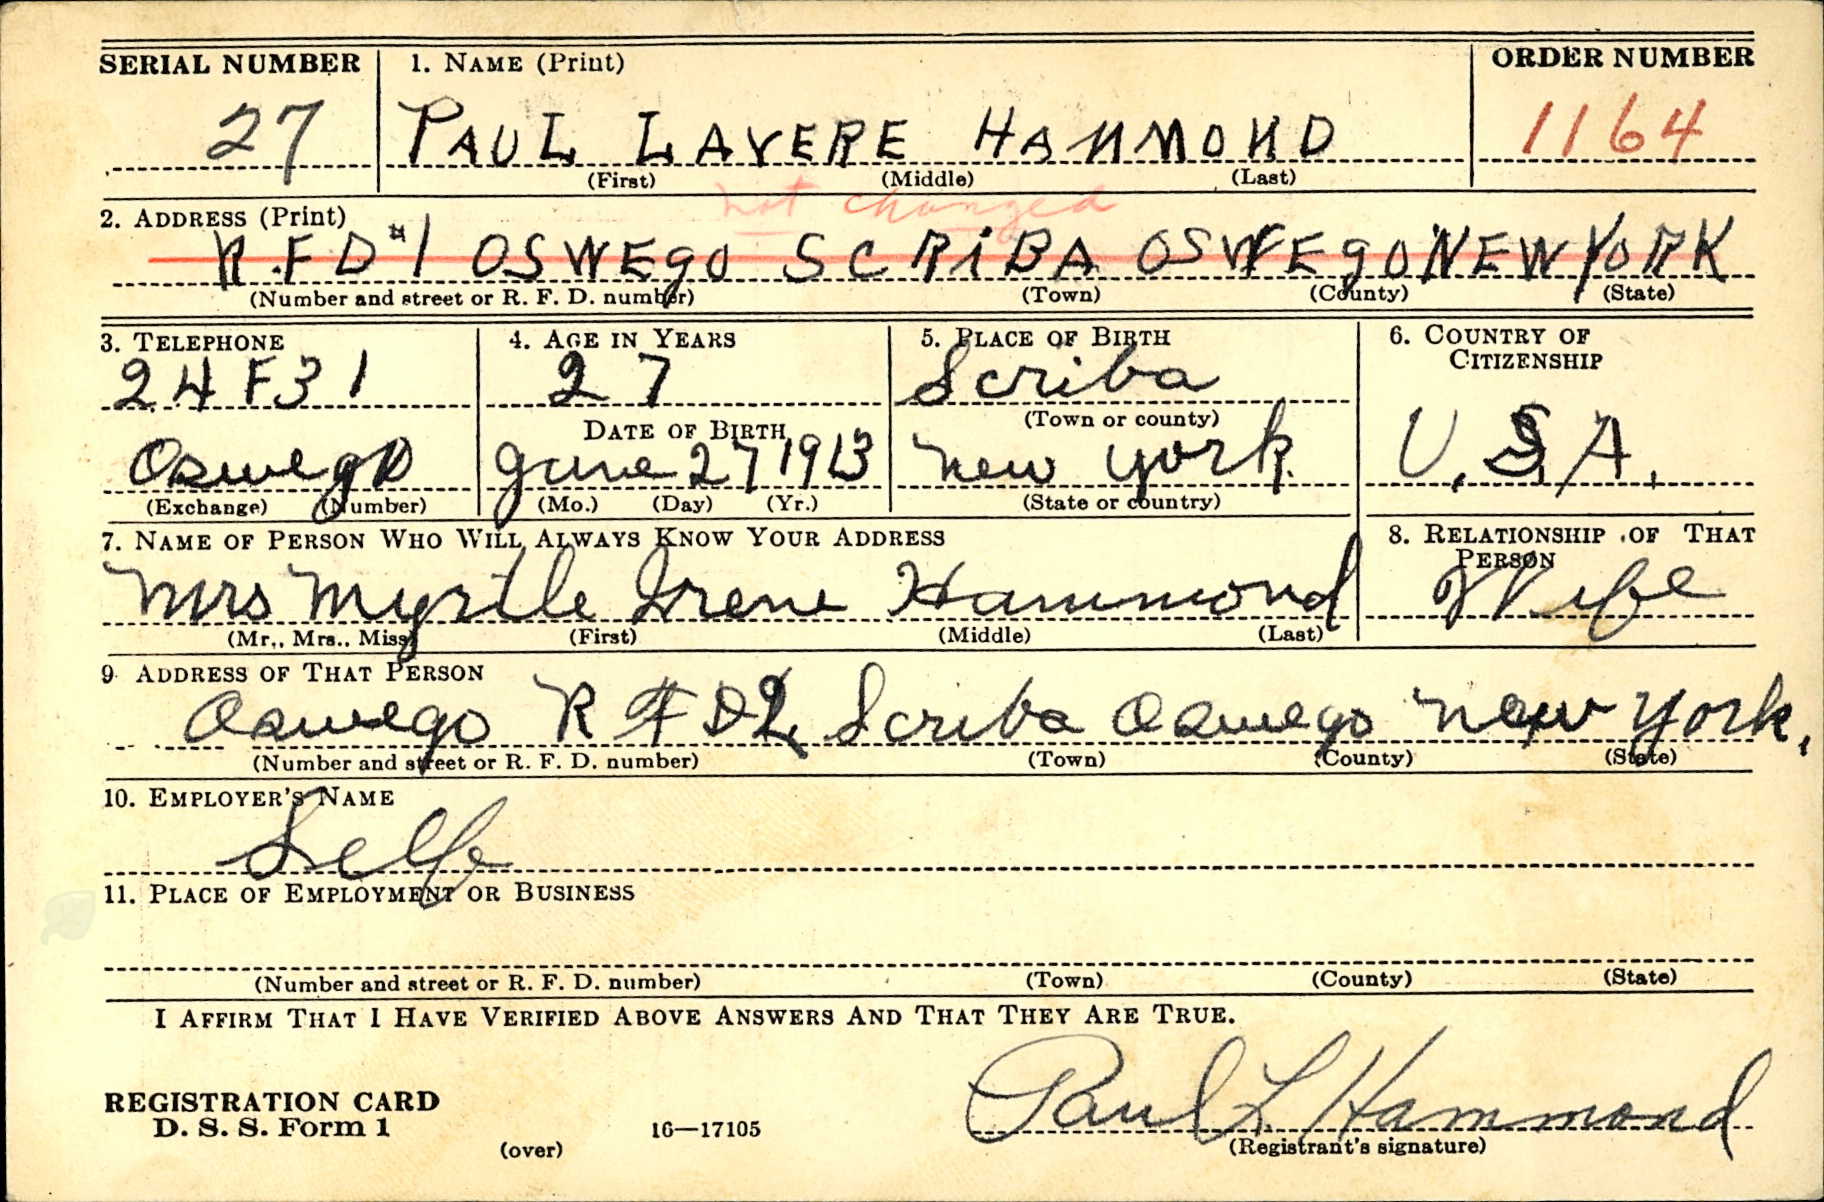 SERIAL NUMBER 1. NAME (Print) ORDER NUMBER
27 PAUL LAVERE HAMMOND 1164
(First) (Middle) (Last)
not changed
2. ADDRESS (Print)
R.F.D #1 OSWEGO SCRiBA OSWEGO NEW YORK
(Number and street or R. F. D. number) (Town) (County) (State)
3. TELEPHONE 4. AGE IN YEARS 5. PLACE OF BIRTH 6. COUNTRY OF CITIZENSHIP
24 F31 27 Scriba
(Town or county)
DATE OF BIRTH
Oswego June 27 1913 New York U.S.A.
(Exchange) (Number) (Mo.) (Day) (Yr.) (State or country)
7. NAME OF PERSON WHO WILL ALWAYS KNOW YOUR ADDRESS 8. RELATIONSHIP OF THAT PERSON
Mrs Myrtle Irene Hammond Wife
(Mr., Mrs., Miss) (First) (Middle) (Last)
9. ADDRESS OF THAT PERSON
Oswego R F D Scriba Oswego New York.
(Number and street or R. F. D. number) (Town) (County) (State)
10. EMPLOYER'S NAME
Self
11. PLACE OF EMPLOYMENT OR BUSINESS
(Number and street or R. F. D. number) (Town) (County) (State)
I AFFIRM THAT I HAVE VERIFIED ABOVE ANSWERS AND THAT THEY ARE TRUE.
Paul L Hammond
REGISTRATION CARD
D. S. S. Form 1
(over) 16—17105 (Registrant's signature)